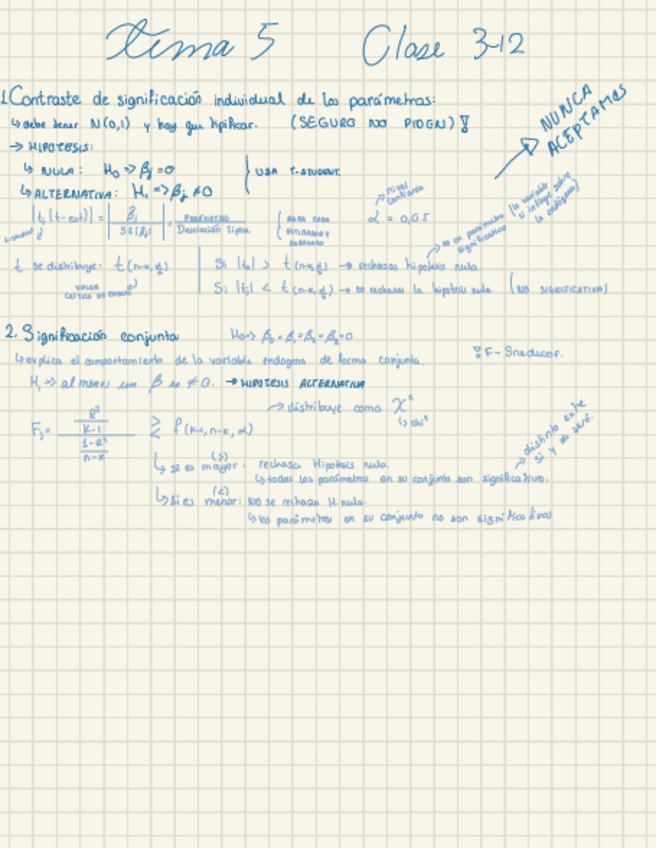 Tema 5 Clase 3-12
1. Contraste de significación individual de los parámetros:
↳ debe tener N(0,1) y hay que tipificar. (SEGURO NO PIDEN)!
NUNCA ACEPTAMOS
→ HIPOTESIS:
↳ NULA: H₀ => βⱼ = 0
↳ ALTERNATIVA: H₁ => βⱼ ≠ 0
USA T-STUDENT.
|tⱼ (t-est)| = |βⱼ / SE(βⱼ)| = PARÁMETRO / Desviación típica
α = 0,05
nivel confianza
es un parámetro significativo (la variable si influye sobre la endógena)
t se distribuye: t(n-k, α/2)
VALOR CRÍTICO DE
Si |tⱼ| > t(n-k, α/2) → rechazas hipotesis nula
Si |tⱼ| < t(n-k, α/2) → no rechazas la hipotesis nula. (NO SIGNIFICATIVO)
2. Significación conjunta H₀ => β₀ = β₁ = β₂ = β₃ = 0
↳ explica el comportamiento de la variable endogena de forma conjunta.
! F-Snedecor.
H₁ => al menos un β es ≠ 0. → HIPOTESIS ALTERNATIVA
→ distribuye como χ²
↳ chi²
Fⱼ = (R² / k-1) / (1-R² / n-k) ≷ f(k-1, n-k, α)
↳ si es mayor (>): rechazas Hipotesis nula.
↳ todos los parámetros en su conjunto son significativo.
→ distinto entre si y de cero.
↳ si es menor (<): NO se rechaza H. nula.
↳ los parámetros en su conjunto no son significativos